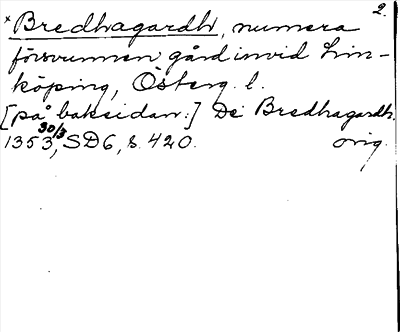 2.
*Bredhagardh, numera
försvunnen gård invid Lin-
köping, Österg. l.
[på baksidan:] De Bredhagardh.
1353 30/3, SD6, s. 420. orig.